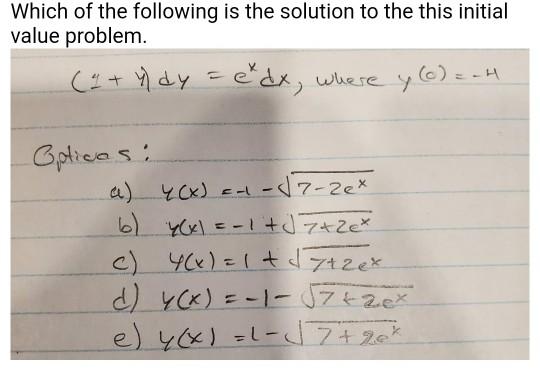 Which of the following is the solution to the this initial
value problem.
(1 + y) dy = e^x dx, where y(0) = -4
Options:
a) y(x) = -1 - √7-2e^x
b) y(x) = -1 + √7+2e^x
c) y(x) = 1 + √7+2e^x
d) y(x) = -1 - √7+2e^x
e) y(x) = 1 - √7+2e^x